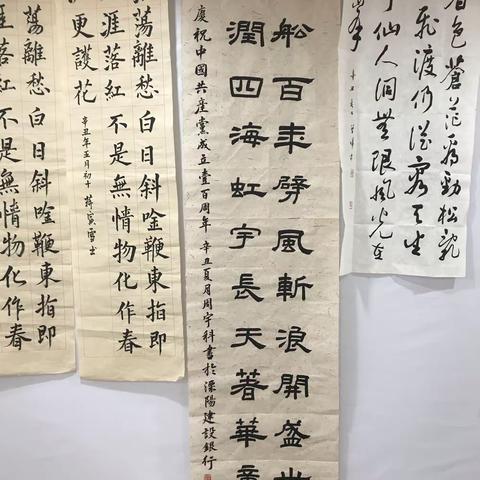 色蒼茫看勁松亂
飛渡仍從容天生
仙人洞無限風光在
舩百年劈風斬浪開盛世
潤四海虹宇長天著華章
慶祝中國共產黨成立壹百周年 辛丑夏月周宇科書於溧陽建設銀行
蕩離愁白日斜吟鞭東指即
涯落紅不是無情物化作春
更護花
蕩離愁白日斜吟鞭東指即
涯落紅不是無情物化作春